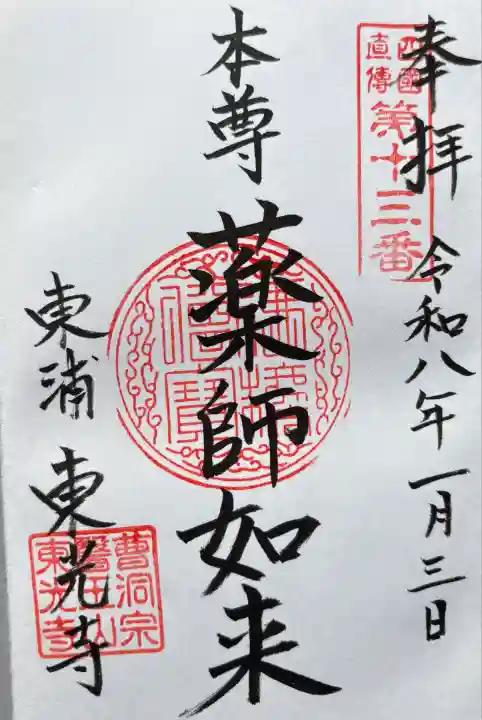 奉拝
四國
直傳
第十三番
令和八年一月三日
本尊
薬師如来
佛法僧寶
東浦
東光寺
曹洞宗
醫王山
東光寺